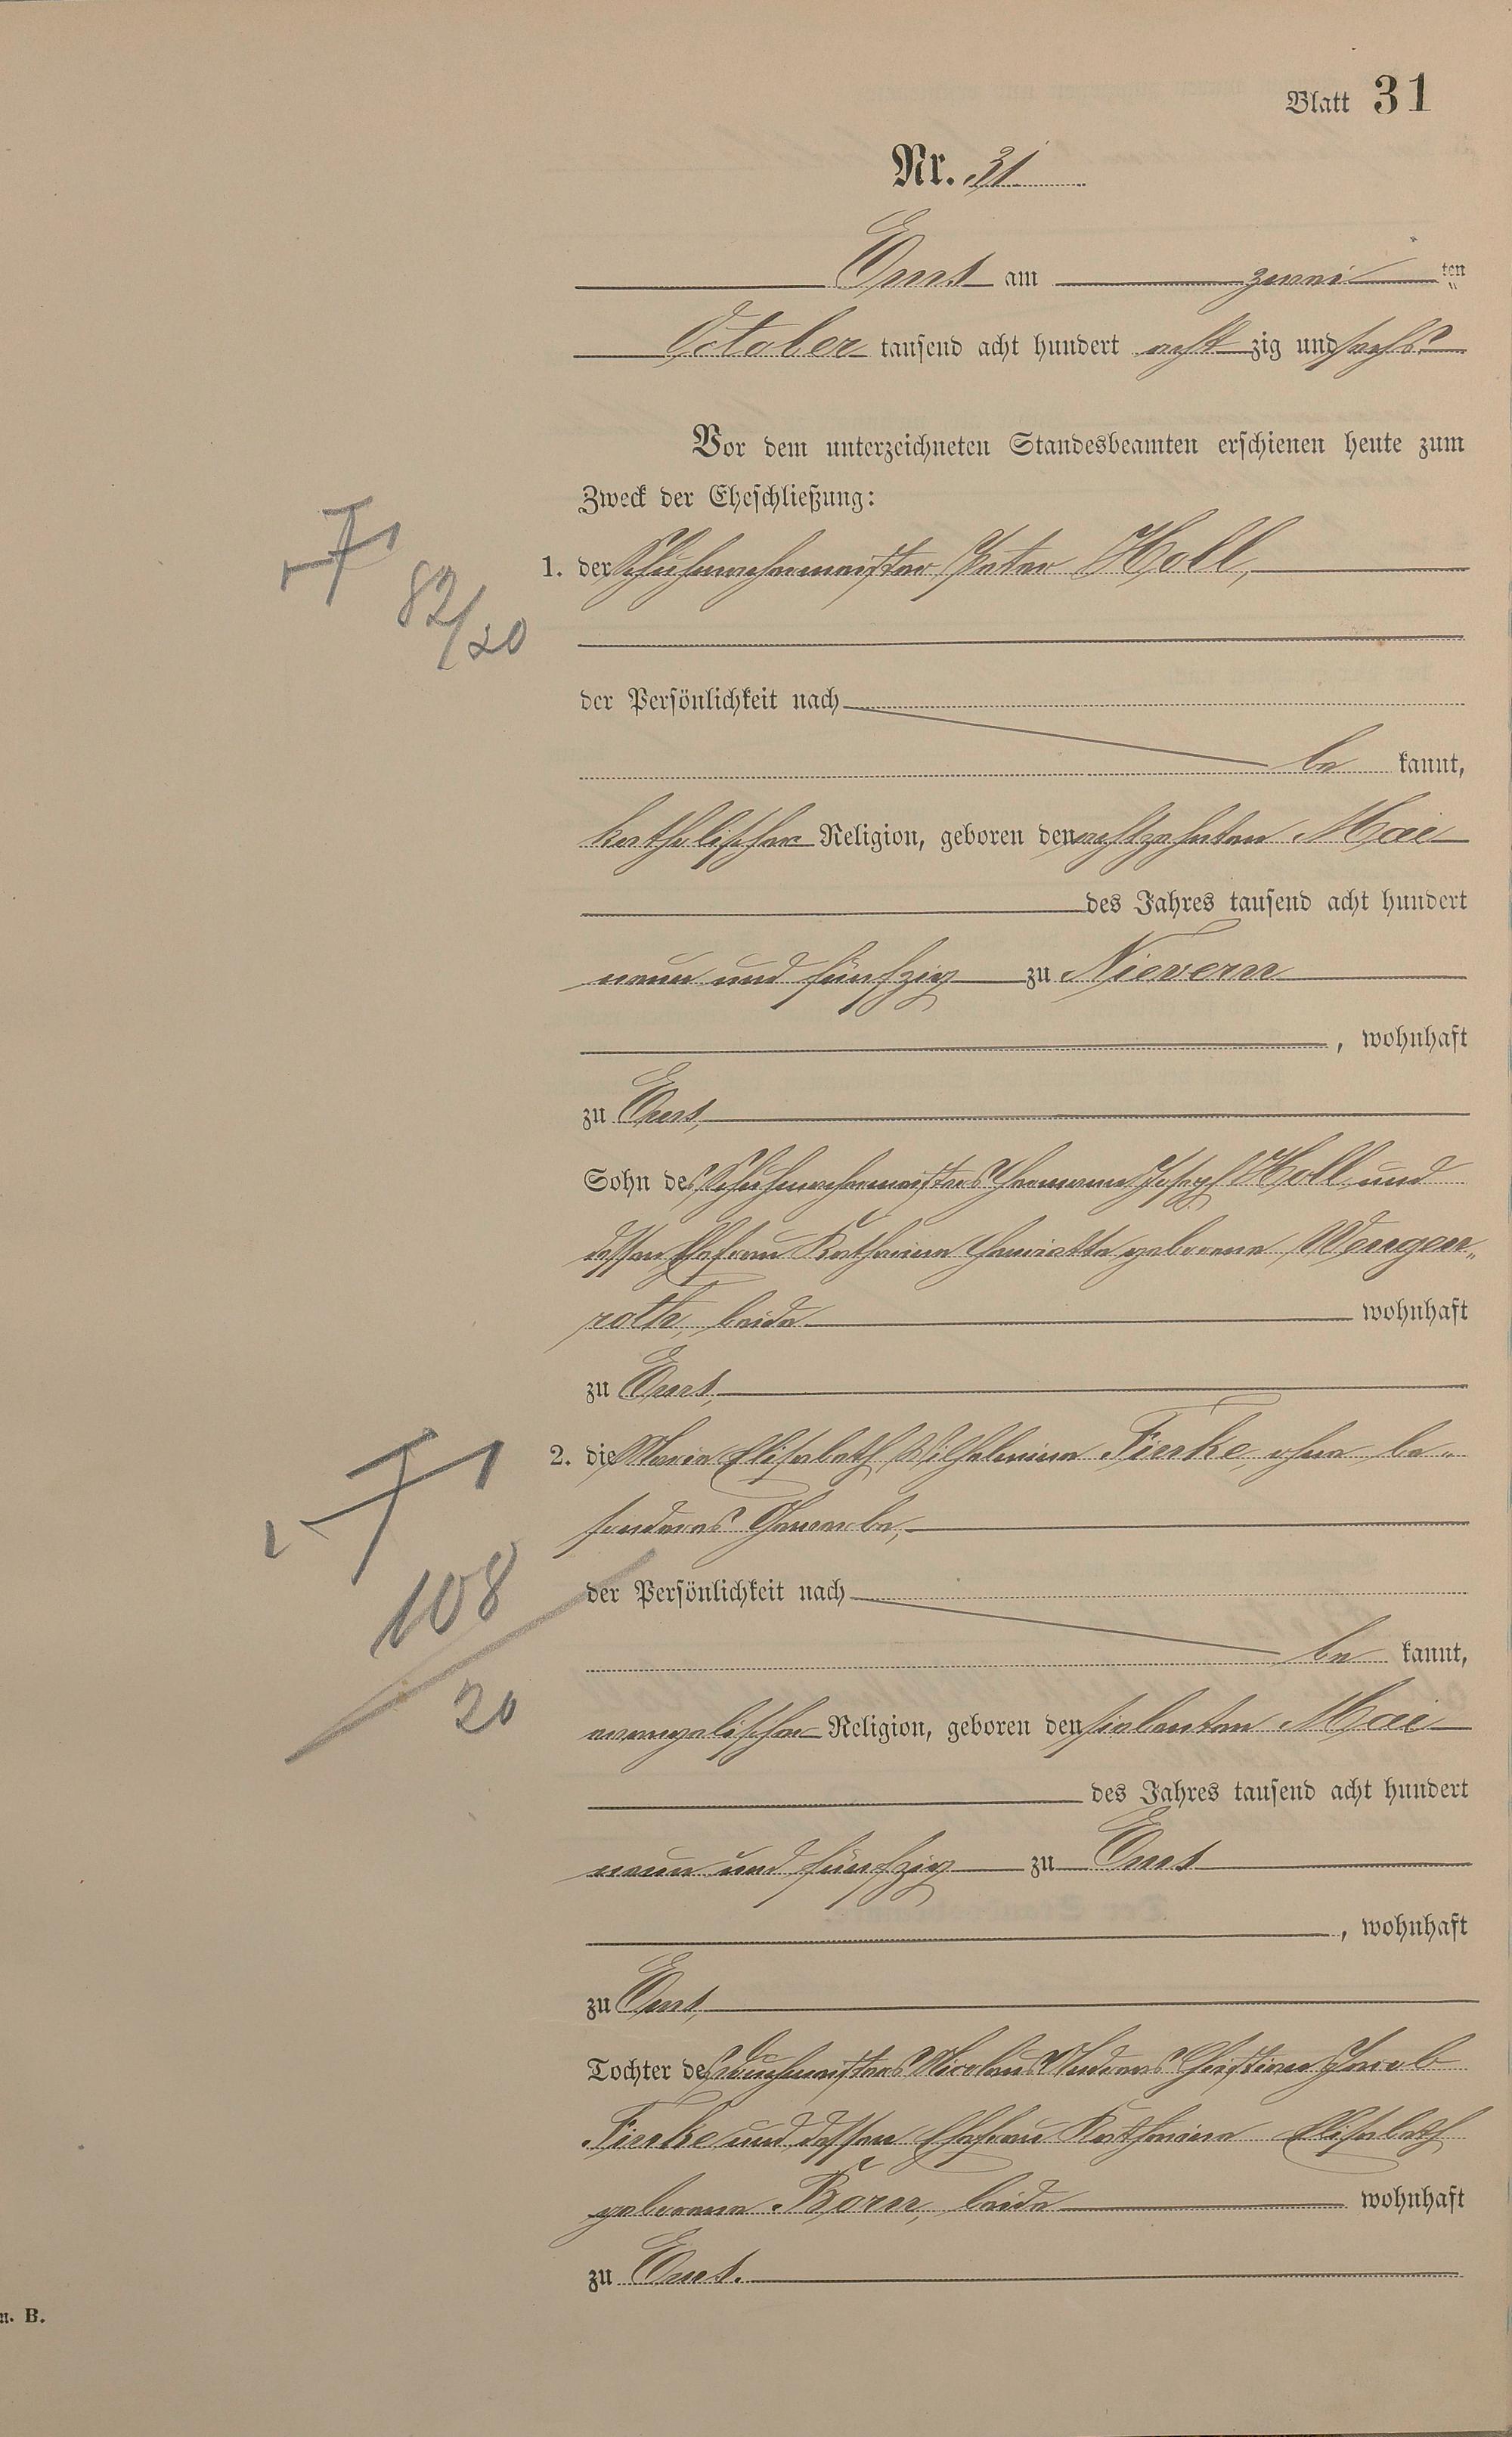 Blatt 31
Nr. 31
Ems am zwei ten
October tausend acht hundert acht zig und sechs
Vor dem unterzeichneten Standesbeamten erschienen heute zum
Zweck der Eheschließung:
1. der Schuhmachermeister Peter Holl,
der Persönlichkeit nach
be kannt,
katholischer Religion, geboren den achtzehnten Mai
des Jahres tausend acht hundert
neun und fünfzig zu Nievern
, wohnhaft
zu Ems,
Sohn des Schuhmachermeisters Hermann Joseph Holl und
dessen Ehefrau Katharina Henriette geborene Wengen-
roth, beide wohnhaft
zu Ems,
2. die Maria Elisabeth Wilhelmina Finke, ohne be-
sonderes Gewerbe,
der Persönlichkeit nach
be kannt,
evangelischer Religion, geboren den siebenten Mai
des Jahres tausend acht hundert
neun und fünfzig zu Ems
, wohnhaft
zu Ems,
Tochter des Nicolaus Andreas Christian Jacob
Finke und dessen Ehefrau Katharina Elisabeth
geborene Born, beide wohnhaft
zu Ems.
82/20
108
20
n. B.